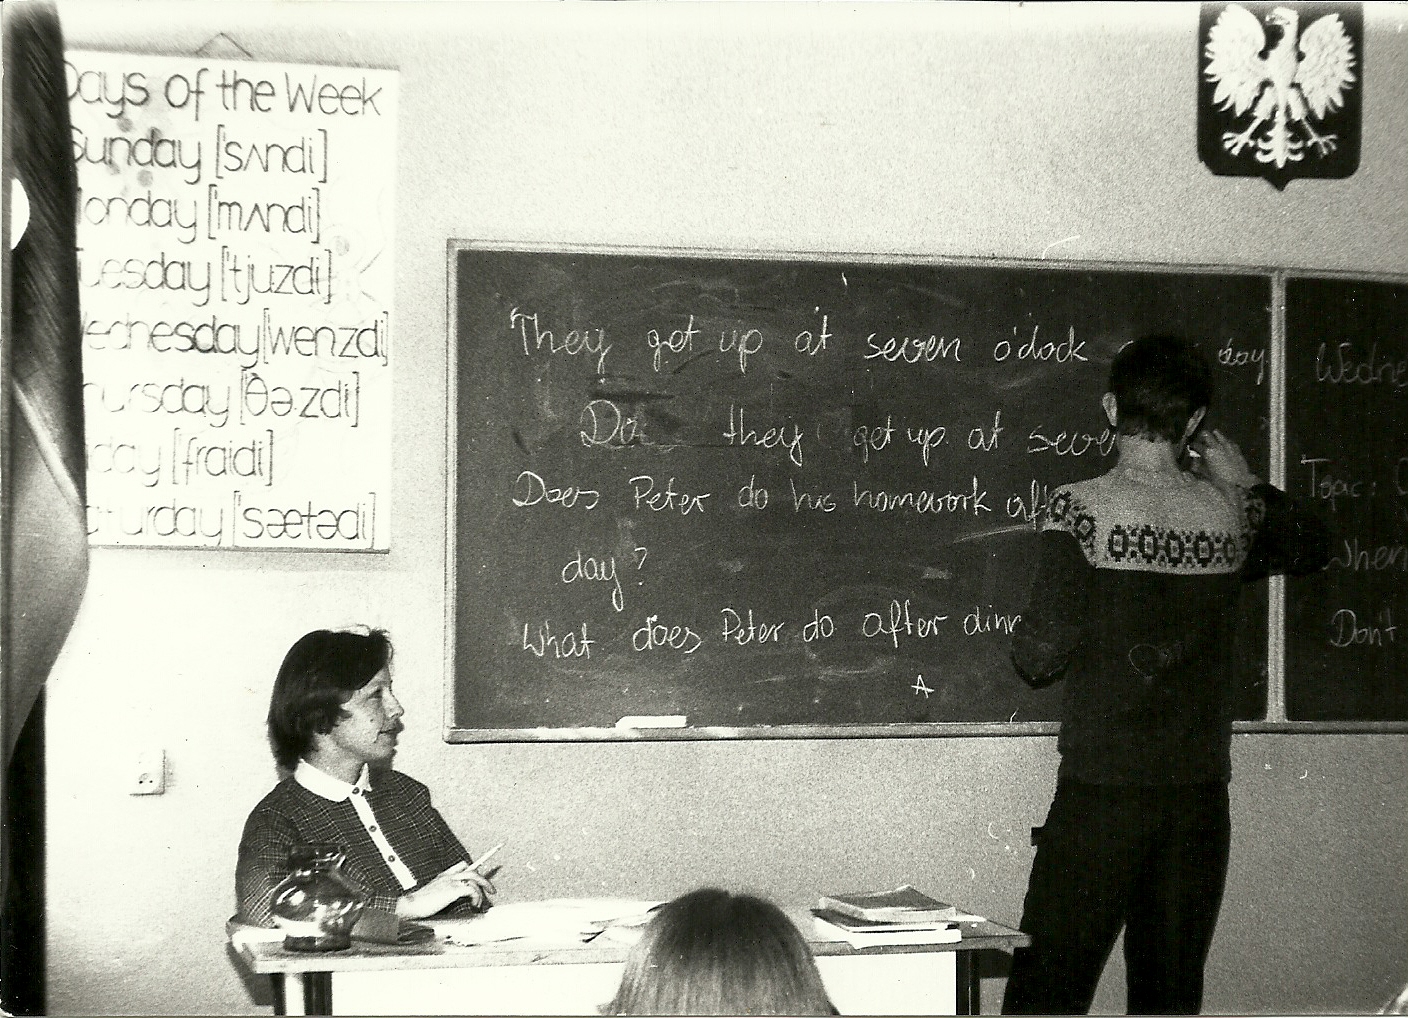 Days of the Week
Sunday ['sʌndi]
Monday ['mʌndi]
Tuesday ['tjuzdi]
Wednesday [wenzdi]
Thursday ['θəzdi]
day ['fraidi]
Saturday ['sætədi]
They get up at seven o'clock day
Do they get up at seve
Does Peter do his homework aft
day?
What does Peter do after dinn
A
Wedne
Topic:
When
Don't